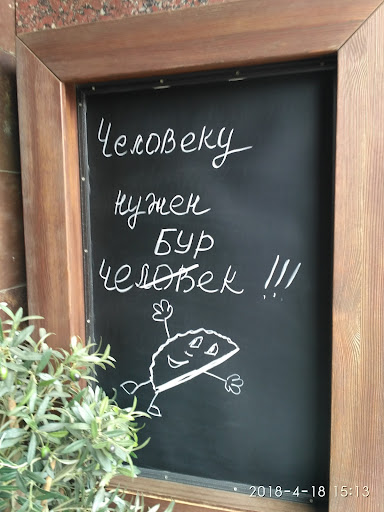 Человеку
нужен
БУР
ЧЕЛОВЕК !!!
2018-4-18 15:13